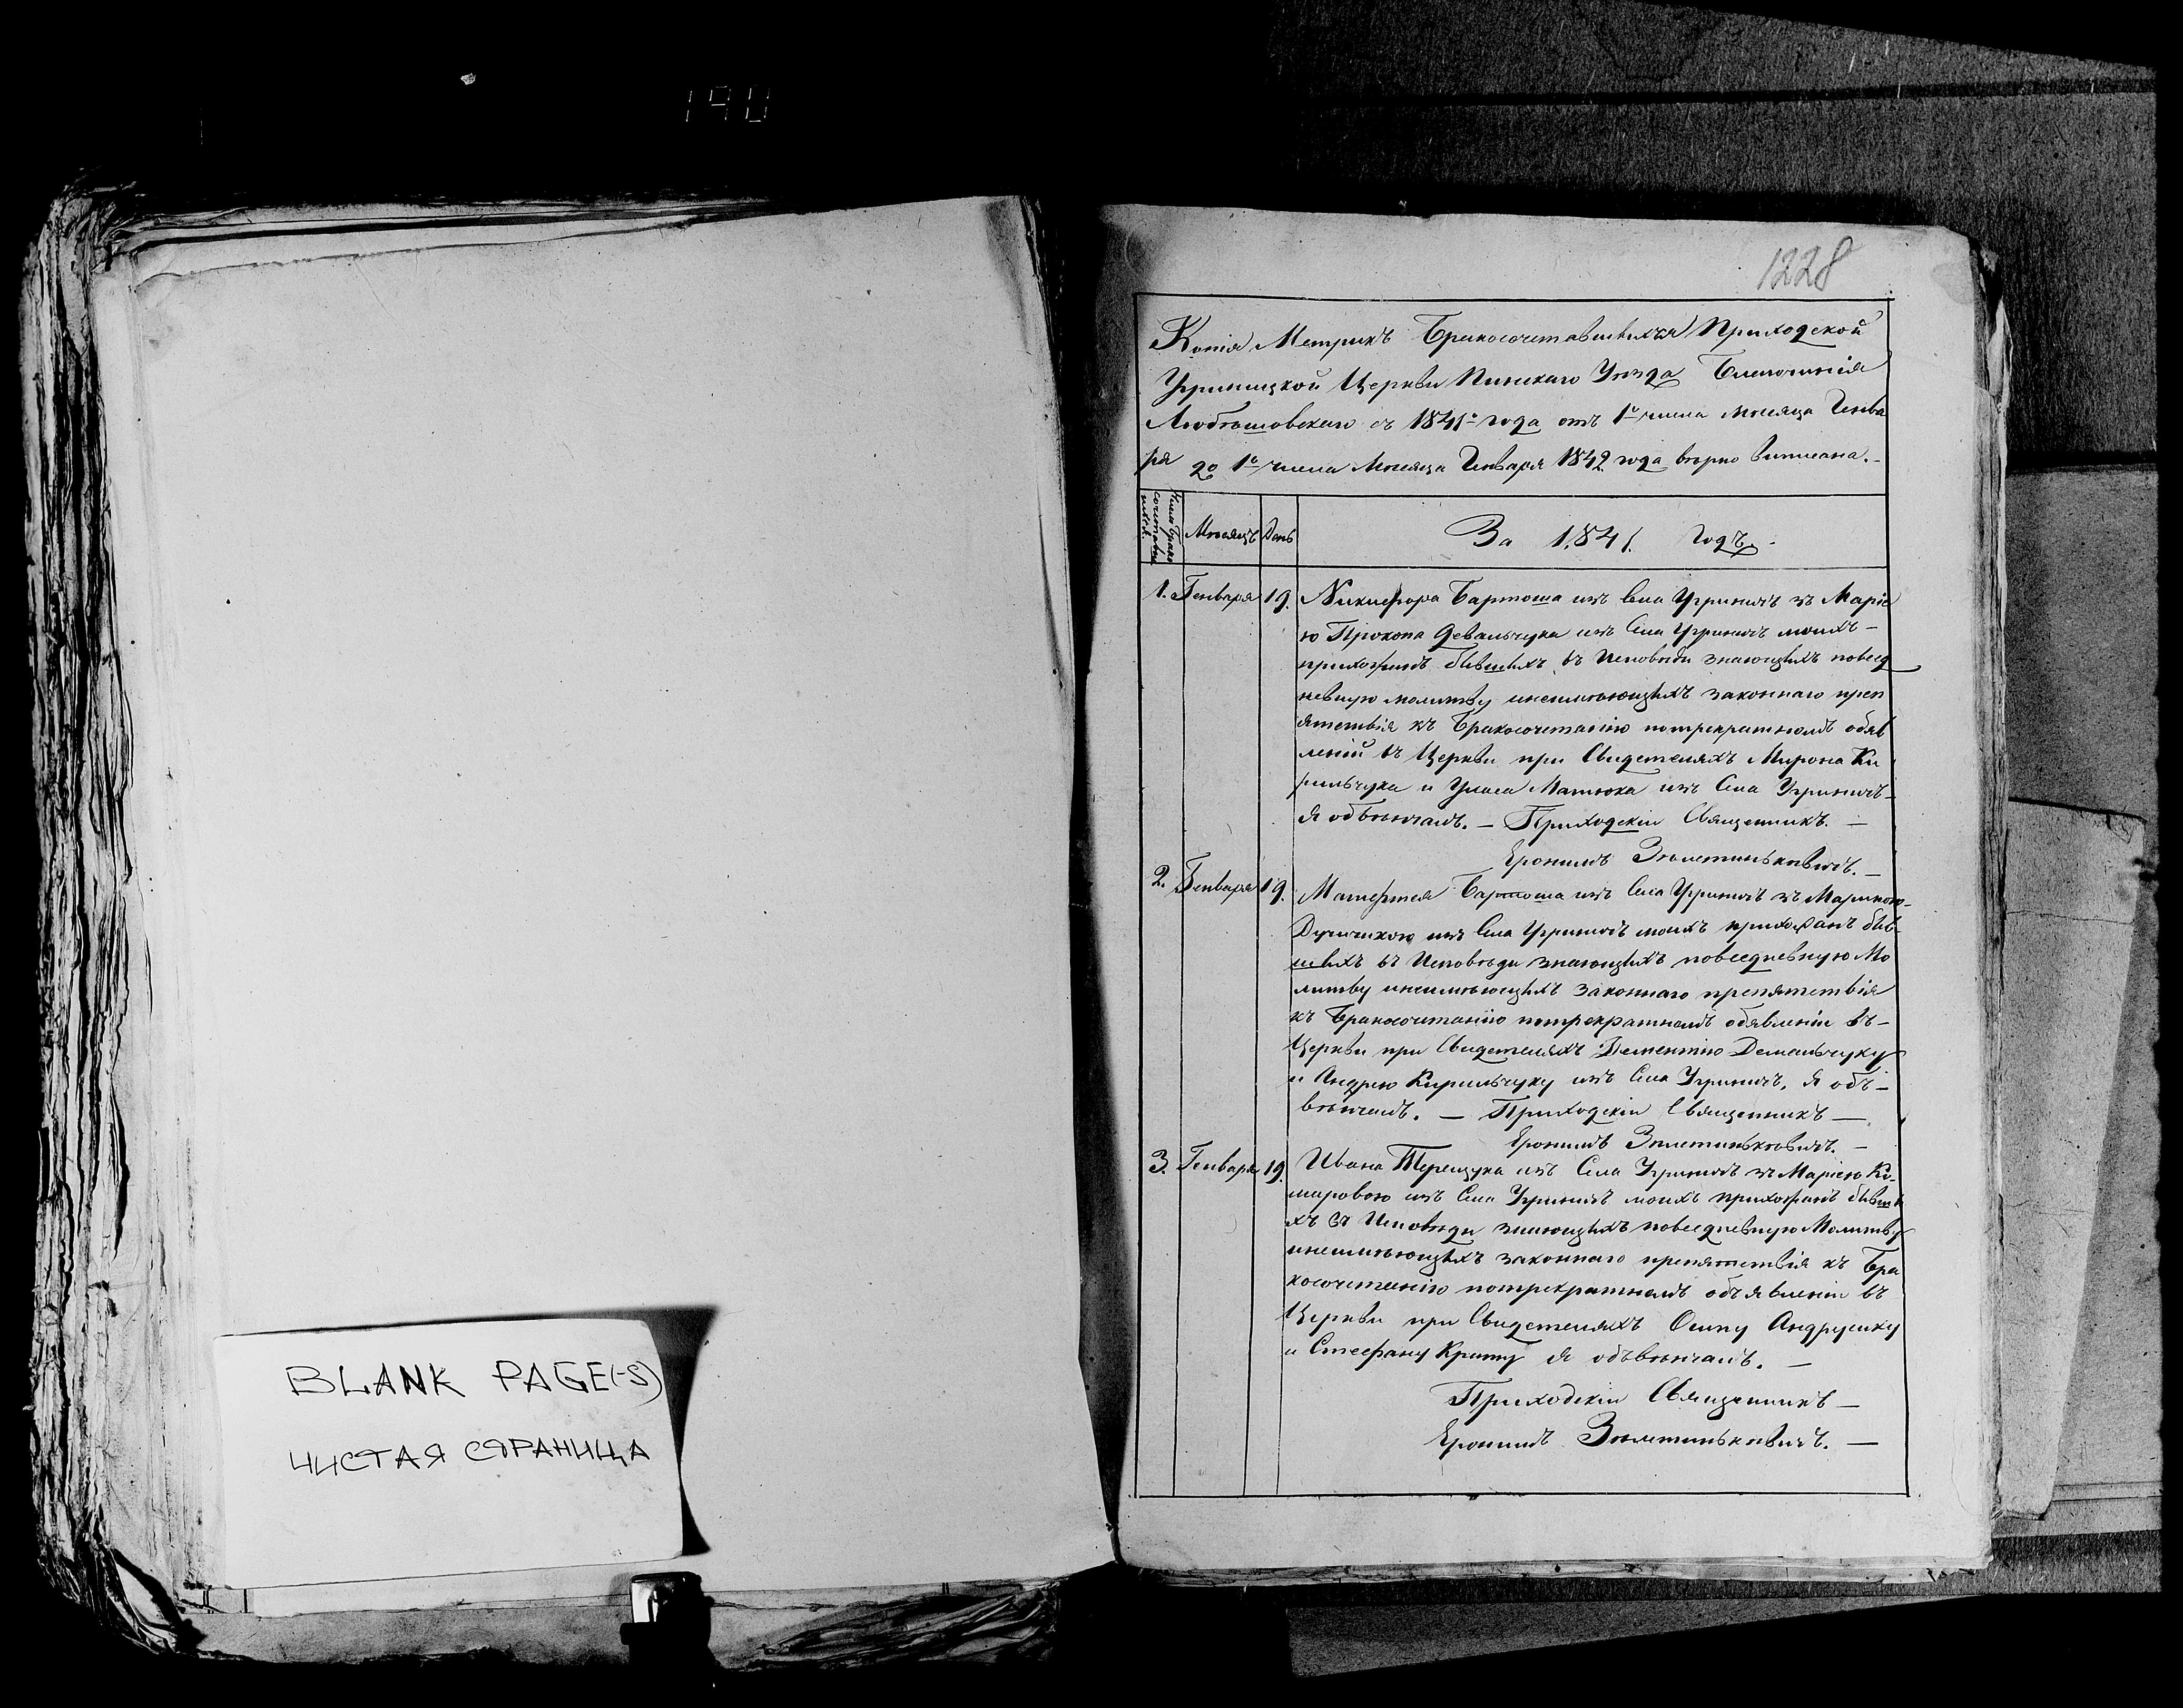 190
1228
Копія Метрикъ Бракосочетавшихся Приходской
Угриницкой Церкви Пинскаго Уѣзда Благочинія
Любѣшовскаго съ 1841º года отъ 1º числа месяца Генва
ря до 1º числа Месяца Генваря 1842 года вѣрно виписана.-
Число Брако
сочетавш
ихся.
Мѣсяцъ День За 1841. годъ.-
1. Генваря 19. Никифора Бартоша изъ Села Угриничъ зъ Маріе
ю Прокопа Девальчука изъ Села Угриничъ моихъ -
прихожанъ бившихъ въ Исповѣди знающихъ повсед
невную молитву инеимѣющихъ законнаго преп
ятствія къ Бракосочетанію потрекратномъ обяв
леній въ Церкви при Свидетеляхъ Мирона Ки
рильчука и Уласа Матюка изъ Села Угриничъ -
Я обвѣнчалъ. - Приходскіи Священникъ. -
Еронимъ
2. Генваря 19. Матфтея Бартоша изъ Села Угриничъ зъ Мариною -
изъ Села Угриничъ моихъ прихожанъ бив-
шихъ въ Исповѣди знающихъ повседневную Мо
литву инеимѣющихъ законнаго препятствія
къ Бракосочетанію потрекратномъ обявленіи въ -
Церкви при Свидетеляхъ Дементію Демельчуку
и Андрею Кирильчуку изъ Села Угриничъ. Я объ -
вѣнчалъ. - Приходскіи Священникъ -
Еронимъ
3. Генваря 19. Ивана Терещука изъ Села Угриничъ зъ Маріею Ко-
маровою изъ Села Угриничъ моихъ прихожанъ бивши
хъ въ Исповѣди знающихъ повседневную Молитву
инеимѣющихъ законнаго препятствія къ Бра
косочетанію потрекратномъ объявленіи въ
Церкви при Свидетеляхъ Осипу Андрусику
и Стефану Криту я объвѣнчалъ. -
Приходскіи Священникъ -
Еронимъ
BLANK PAGE(-S)
ЧИСТАЯ СТРАНИЦА